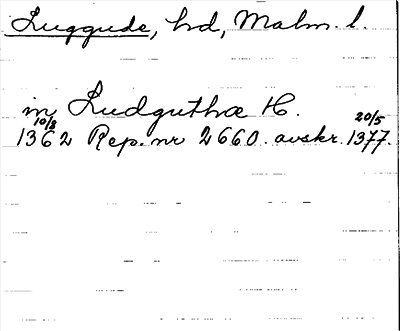 Luggude, hd, Malm. l.
in Ludguthæ H.
10/8 20/5
1362 Rep. nr 2660 avskr. 1377.